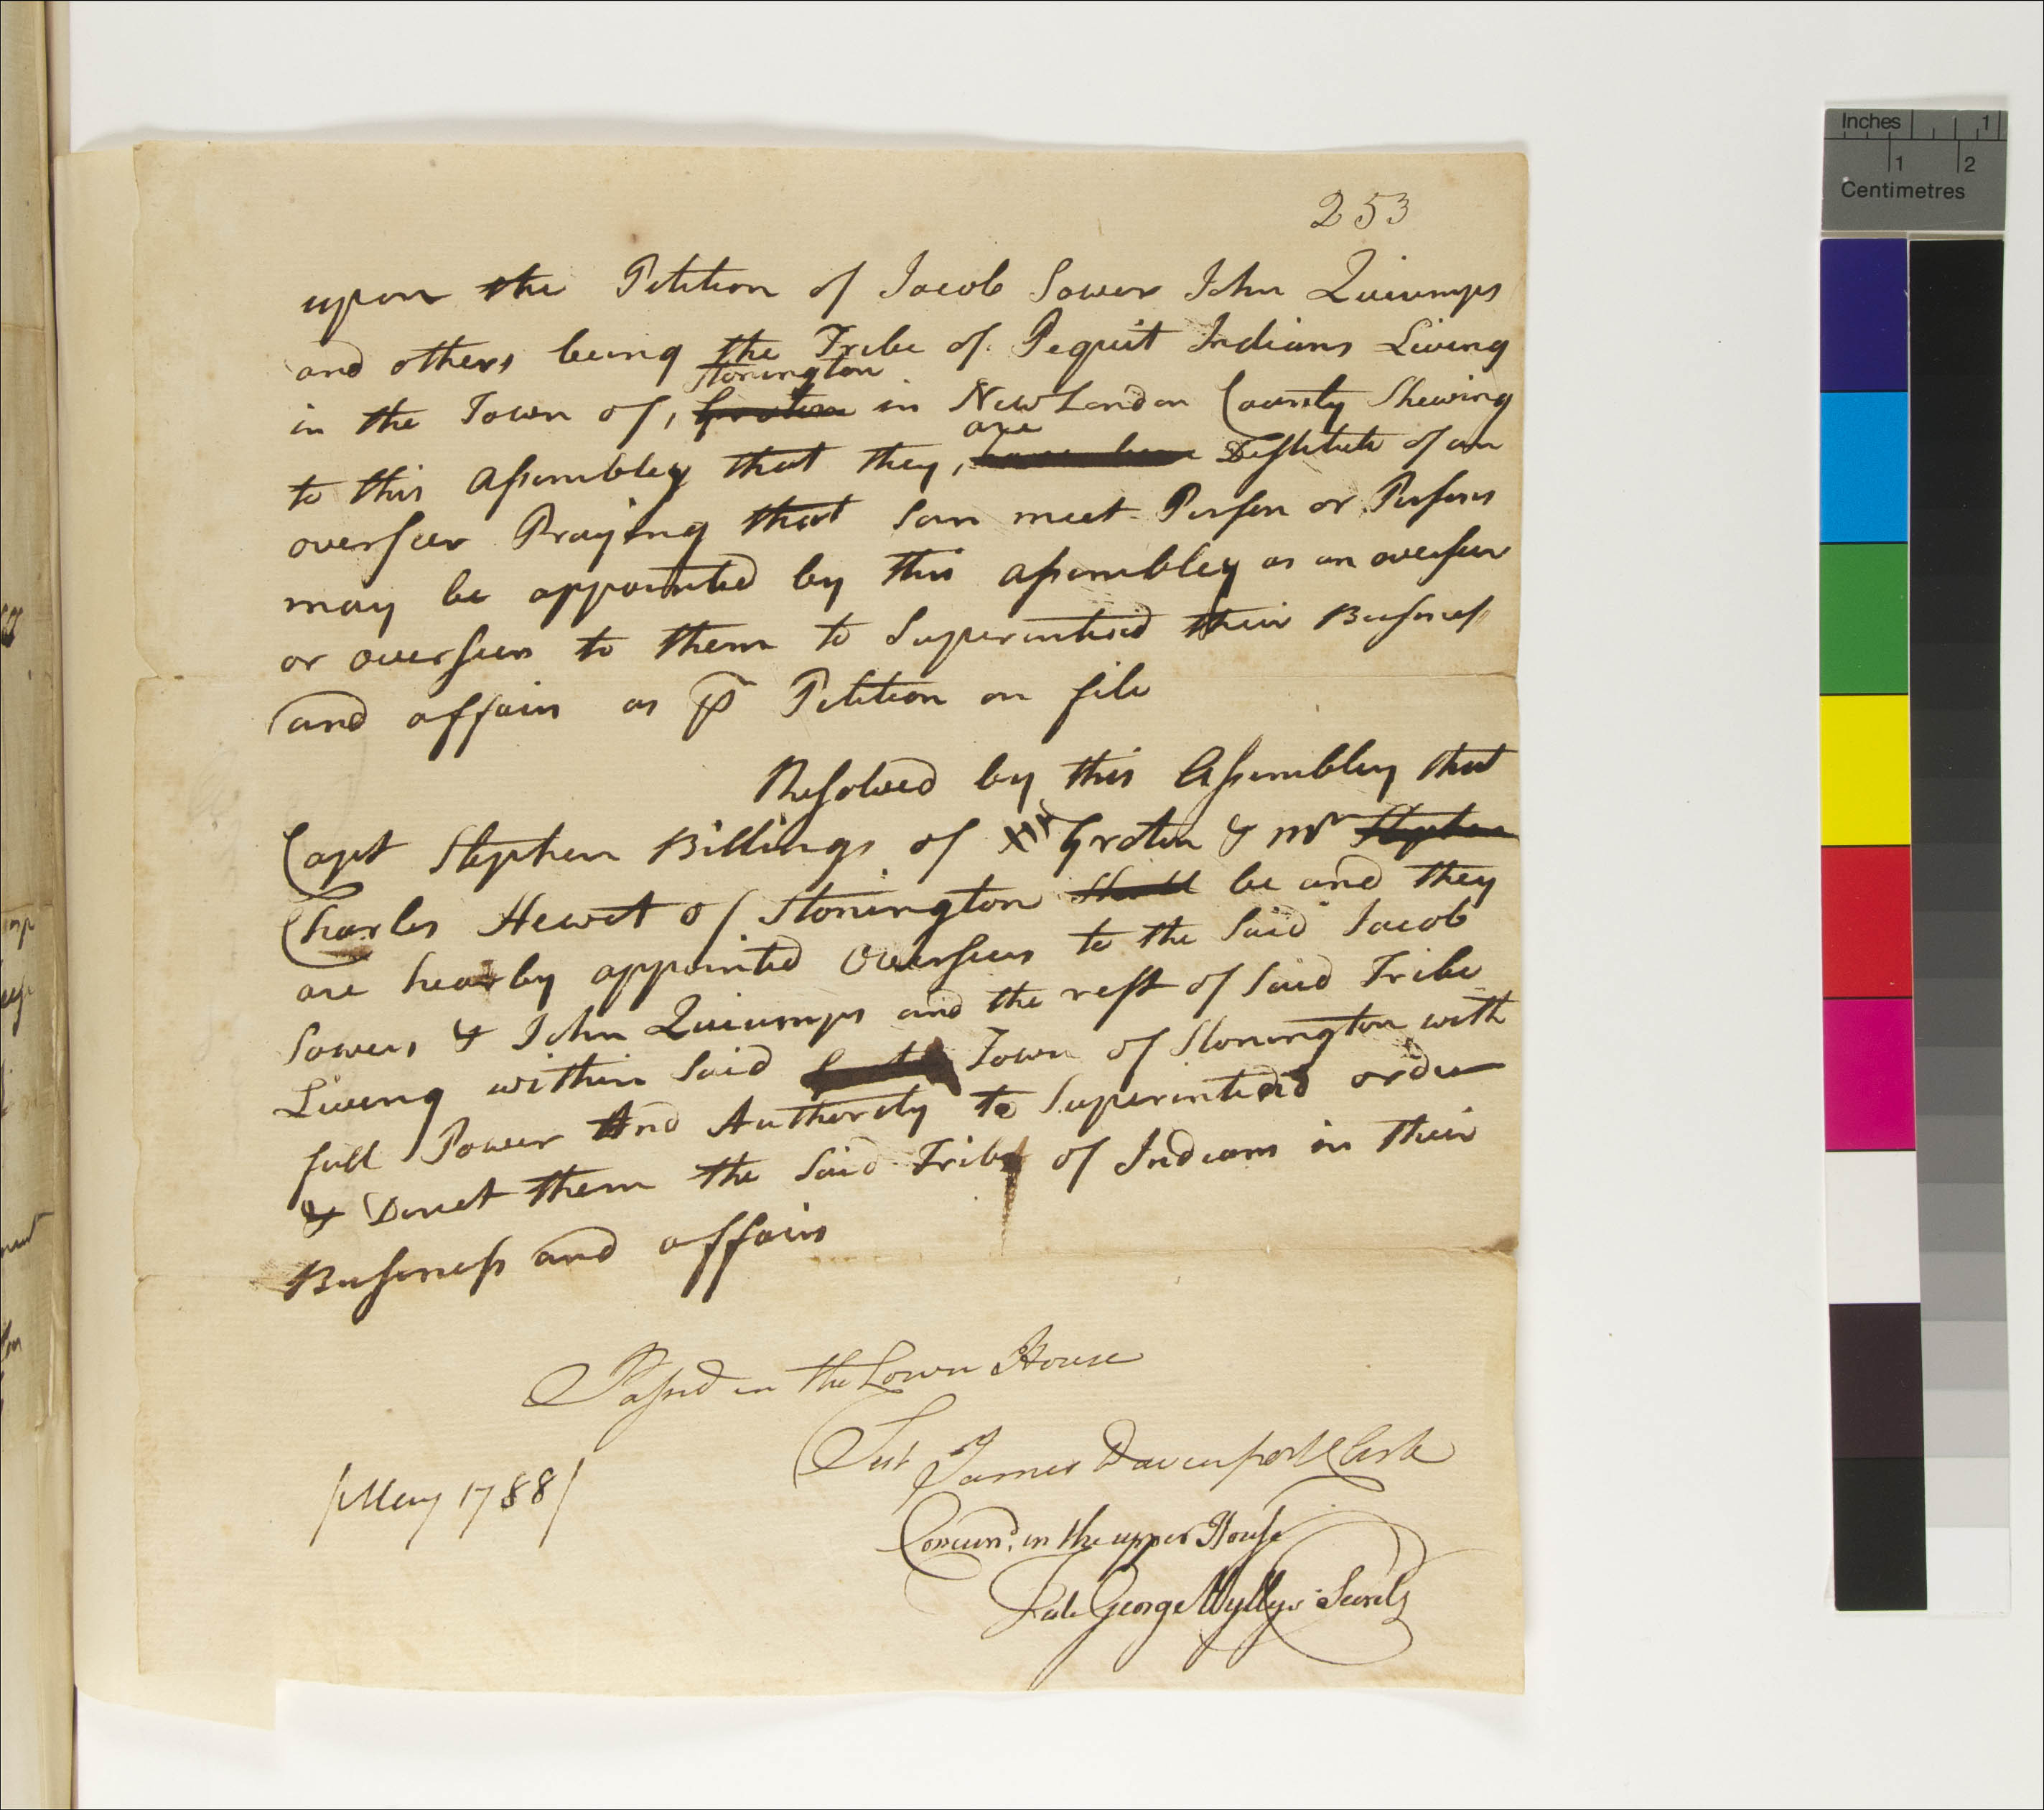 253
upon the Petition of Jacob Sower John Quiumps
and others being the Tribe of Pequit Indians Living
Stonington
in the Town of, Groton in New London County Shewing
are
to this Assembley that they, have been Destitute of an
overseer Praying that som meet Person or Persons
may be appointed by this assembley as an overseer
or overseers to them to Superintend their Busness
and affairs as ꝑ Petition on file
Resolved by this Assembley that
Capt Stephen Billings of Groton & Mr Stephen
Charles Hewit of Stonington Shall be and they
are hearby appointed Overseers to the Said Jacob
Sowers & John Quiumps and the rest of Said Tribe
Living within Said Town of Stonington with
full Power And Authority to Superintend order
& Direct them the Said Tribe of Indians in their
Business and affairs
Passd in the Lower House
Test James Davenport Clerk
/May 1788/
Concurrd. in the upper House
Test George Wyllys Secrety
Inches 1
1 2
Centimetres